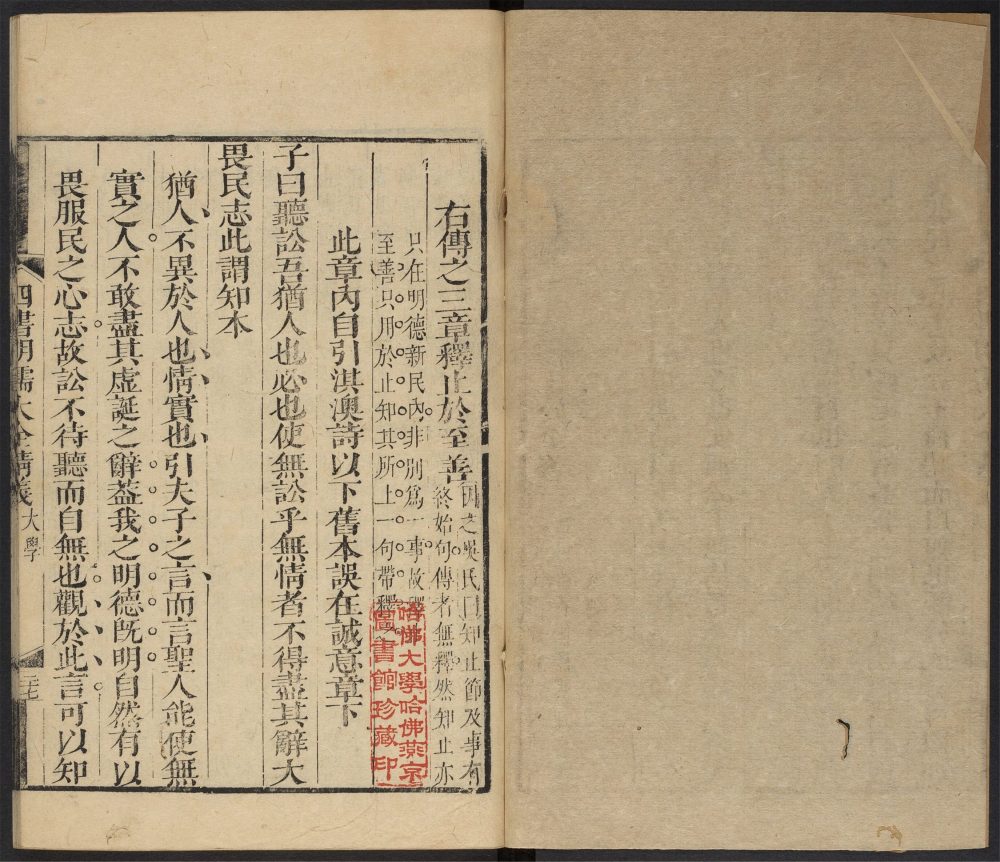 右傳之三章釋止於至善
因之吳氏曰知止節及事有
終始句傳者無釋然知止亦
只在明德新民內非別爲一事故
至善只用於止知其所上一句帶釋
此章內自引淇澳詩以下舊本誤在誠意章下
子曰聽訟吾猶人也必也使無訟乎無情者不得盡其辭大
畏民志此謂知本
猶人不異於人也情實也引夫子之言而言聖人能使無
實之人不敢盡其虛誕之辭葢我之明德旣明自然有以
畏服民之心志故訟不待聽而自無也觀於此言可以知
四書明儒大全精義 大學
三十七
哈佛大學哈佛燕京
圖書館珍藏印